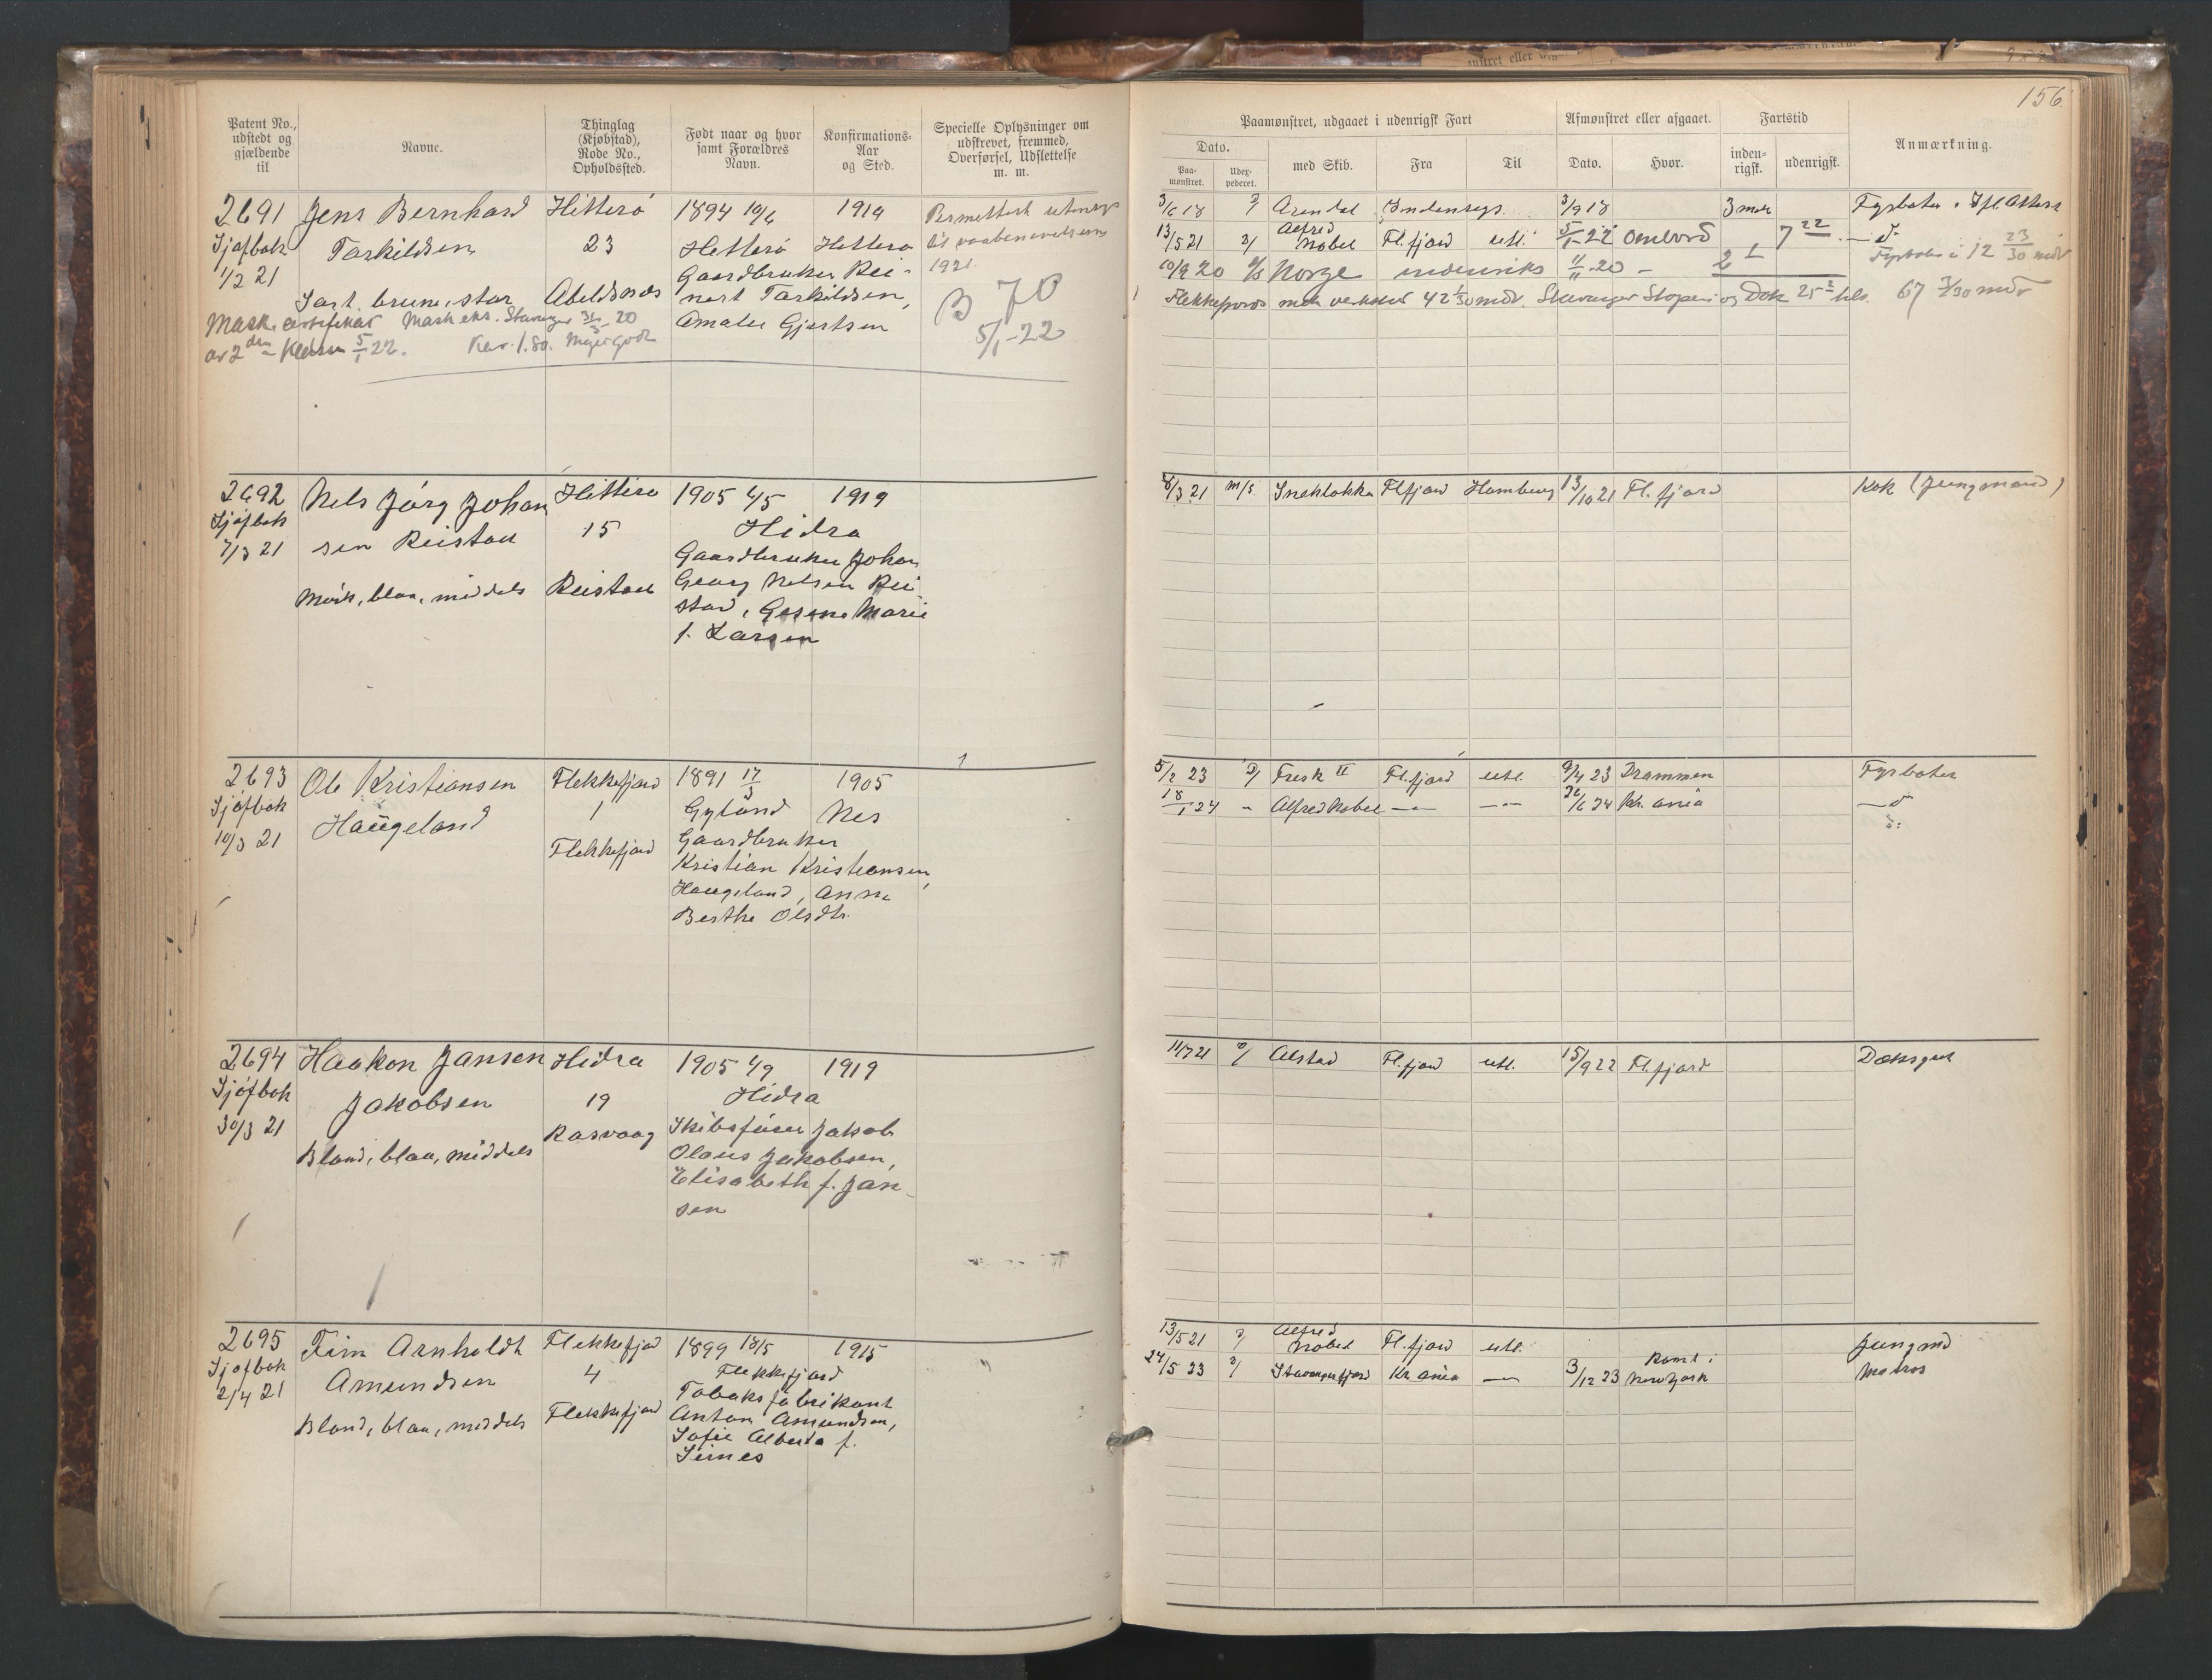 156
Patent No., udstedt og gjældende til
Navne.
Thinglag (Kjøbstad), Rode No., Opholdssted.
Født naar og hvor samt Forældres Navn.
Konfirmations-Aar og Sted.
Specielle Oplysninger om udskrevet, fremmed, Overførsel, Udslettelse m. m.
Paamønstret, udgaaet i udenrigsk Fart
Afmønstret eller afgaaet.
Fartstid
Anmærkning.
Dato.
Paa-mønstret.
Udex-pederet.
med Skib.
Fra
Til
Dato.
Hvor.
inden-rigsk.
udenrigsk.
2691 Jens Bernhard Hitterö 1894 19/6 1910
Sjøfbok Tarkildsen 23 Hitterö Hitterö
1/2 21 Gaardbruker Rei-
Sort, brune, stor Abeldsnæs nert Tarkildsen,
Amalie Gjertsen
1921
B 70
5/1-22
Mask. certifikat Mask eks. Stavanger 31/3 20
av 2den Klasse 5/1 22. Kar. 1.80. Meget godt
3/6 18 Arendal Indenrigs 3/9 18 3 mdr Fyrbøter
13/5 21 Alfred Nobel Fl.fjord utl. 5/1-22 Ombord 7 22 — d-
10/9 20 Norge indenriks 11/11-20 - 2 1 Fyrbøter i 12 23/30 mdr
Flekkefjords mek verksted 42 1/30 mdr. Stavanger Støperi og Dok 25 67 7/30 mdr
2692 Nels Jörg Johan Hitterö 1905 4/5 1919
Sjøfbok sen Reistad 15 Hidra
7/3 21 Gaardbruker Johan
Mörk, blaa, middels Reistad Georg Nelsen Rei
stad, Gesine Marie
f. Larsen
8/3 21 m/s. Fl.fjord Hamburg 13/10 21 Fl.fjord Kok (Jungmand)
2693 Ole Kristiansen Flekkefjord 1891 17/3 1905
Sjøfbok Haugeland 1 Gyland Nes
10/3 21 Flekkefjord Gaardbruker
Kristian Kristiansen
Haugeland, Anna
Berthe Olsdtr.
5/2 23 Fresk II Fl.fjord utl. 9/4 23 Drammen Fyrbøter
18/1 24 - Alfred Nobel —"— —"— 26/6 24 Kr.ania — d
2694 Haakon Jansen Hidra 1905 4/9 1919
Sjøfbok Jakobsen 19 Hidra
30/3 21 Rasvaag Skibsfører Jakob
Blond, blaa, middels Olaus Jakobsen,
Elisabeth f. Jan-
sen
11/7 21 Alstad Fl.fjord utl. 15/9 22 Fl.fjord Dæksgut
2695 Fim Arnholdt Flekkefjord 1899 18/5 1915
Sjøfbok Amundsen 4 Flekkefjord
2/4 21 Tobaksfabrikant
Blond, blaa, middels Flekkefjord Anton Amundsen,
Sofie Alberta f.
Sirnes
13/5 21 Alfred Nobel Fl.fjord utl. Jungmd
24/5 23 Stavangerfjord Kr.ania —"— 3/12 23 Rømt i New York Matros